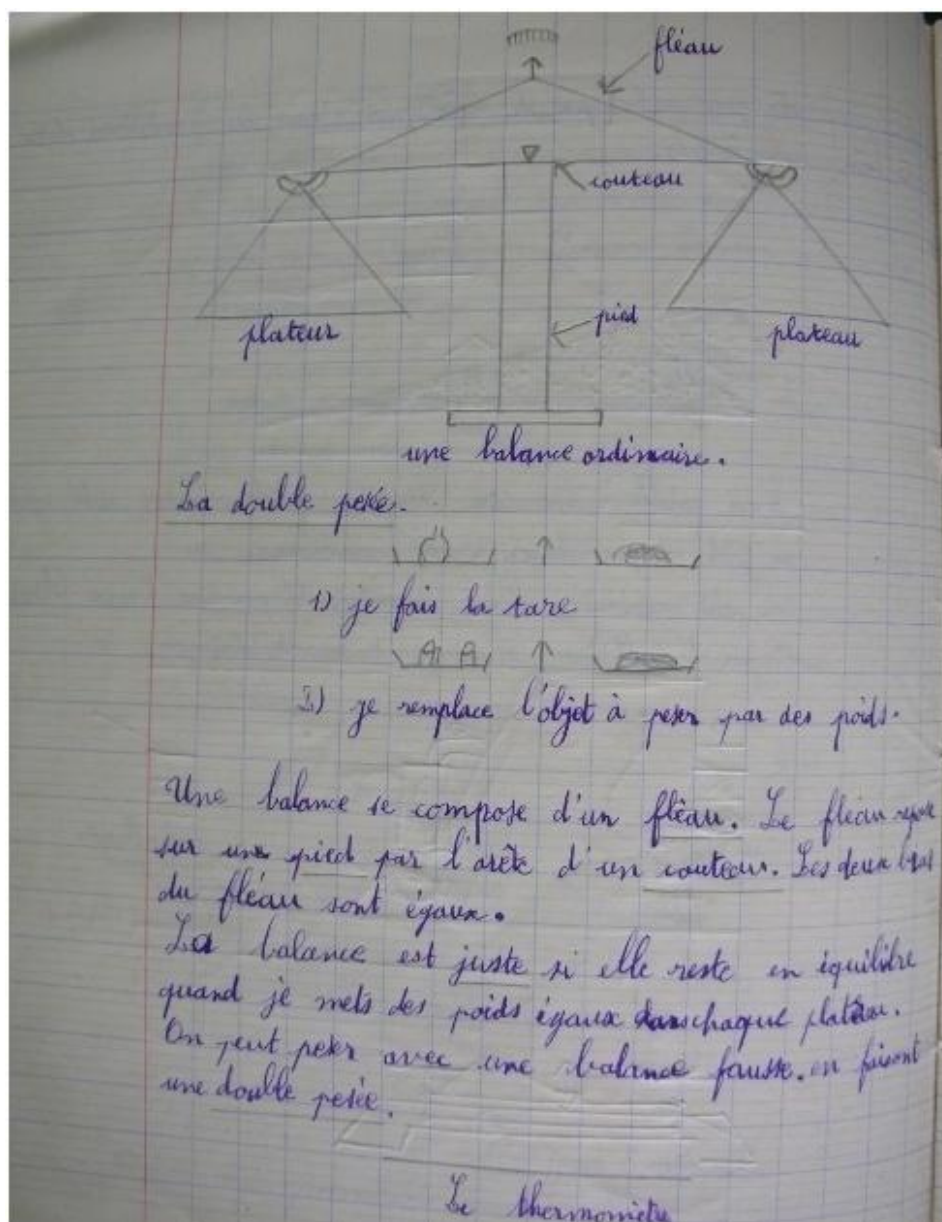 fléau
couteau
plateur
pied
plateau
une balance ordinaire.
La double pesée.
1) je fais la tare
2) je remplace l'objet à peser par des poids.
Une balance se compose d'un fléau. Le fléau repose
sur une pied par l'arête d'un couteau. Les deux bras
du fléau sont égaux.
La balance est juste si elle reste en équilibre
quand je mets des poids égaux dans chaque plateau.
On peut peser avec une balance fausse. en faisant
une double pesée.
Le thermomètre